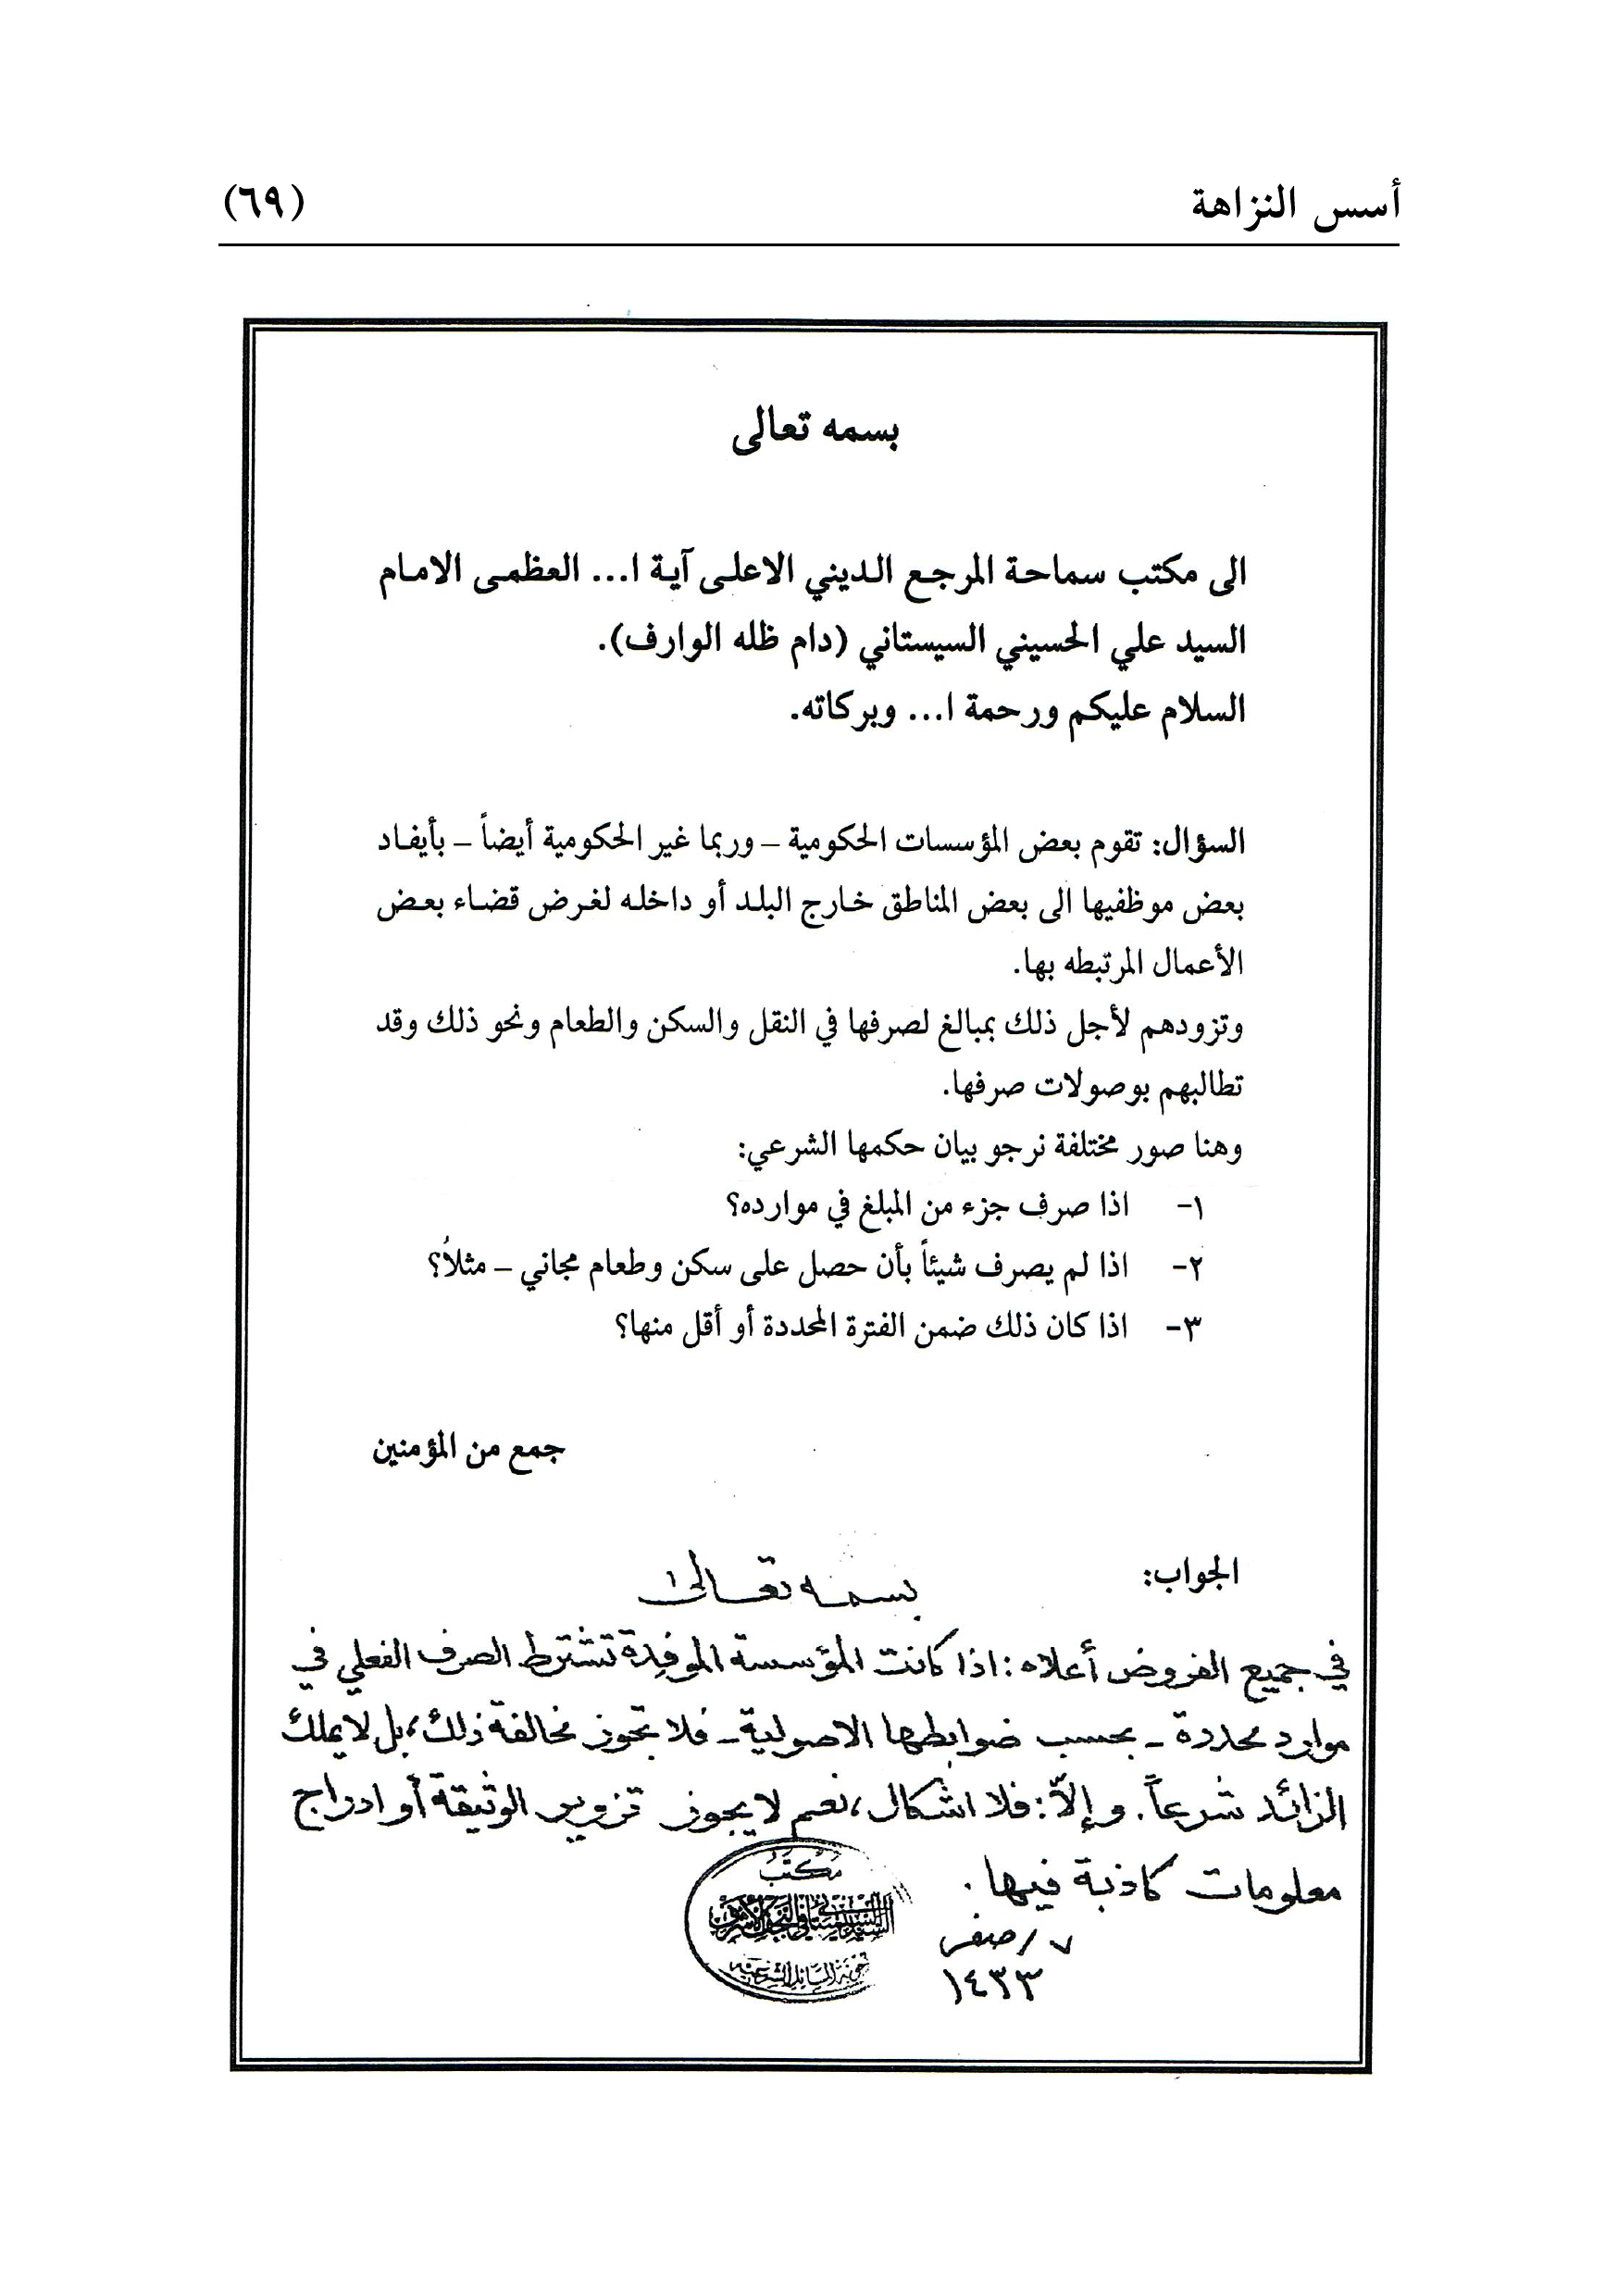 أسس النزاهة (٦٩)
بسمه تعالى
الى مكتب سماحة المرجع الديني الاعلى آية ا... العظمى الامام
السيد علي الحسيني السيستاني (دام ظله الوارف).
السلام عليكم ورحمة ا... وبركاته.
السؤال: تقوم بعض المؤسسات الحكومية – وربما غير الحكومية أيضاً – بأيفاد
بعض موظفيها الى بعض المناطق خارج البلد أو داخله لغرض قضاء بعض
الأعمال المرتبطه بها.
وتزودهم لأجل ذلك بمبالغ لصرفها في النقل والسكن والطعام ونحو ذلك وقد
تطالبهم بوصولات صرفها.
وهنا صور مختلفة نرجو بيان حكمها الشرعي:
١- اذا صرف جزء من المبلغ في موارده؟
٢- اذا لم يصرف شيئاً بأن حصل على سكن وطعام مجاني – مثلاً؟
٣- اذا كان ذلك ضمن الفترة المحددة أو أقل منها؟
جمع من المؤمنين
الجواب:
بسمه تعالى
في جميع الفروض أعلاه: اذا كانت المؤسسة الموفدة تشترط الصرف الفعلي في
موارد محددة - بحسب ضوابطها الاصولية - فلا تجوز مخالفة ذلك، بل لا يملك
الزائد شرعاً. وإلاّ: فلا اشكال، نعم لا يجوز تزوير الوثيقة أو ادراج
معلومات كاذبة فيها.
٧/ صفر
١٤٣٣
مكتب